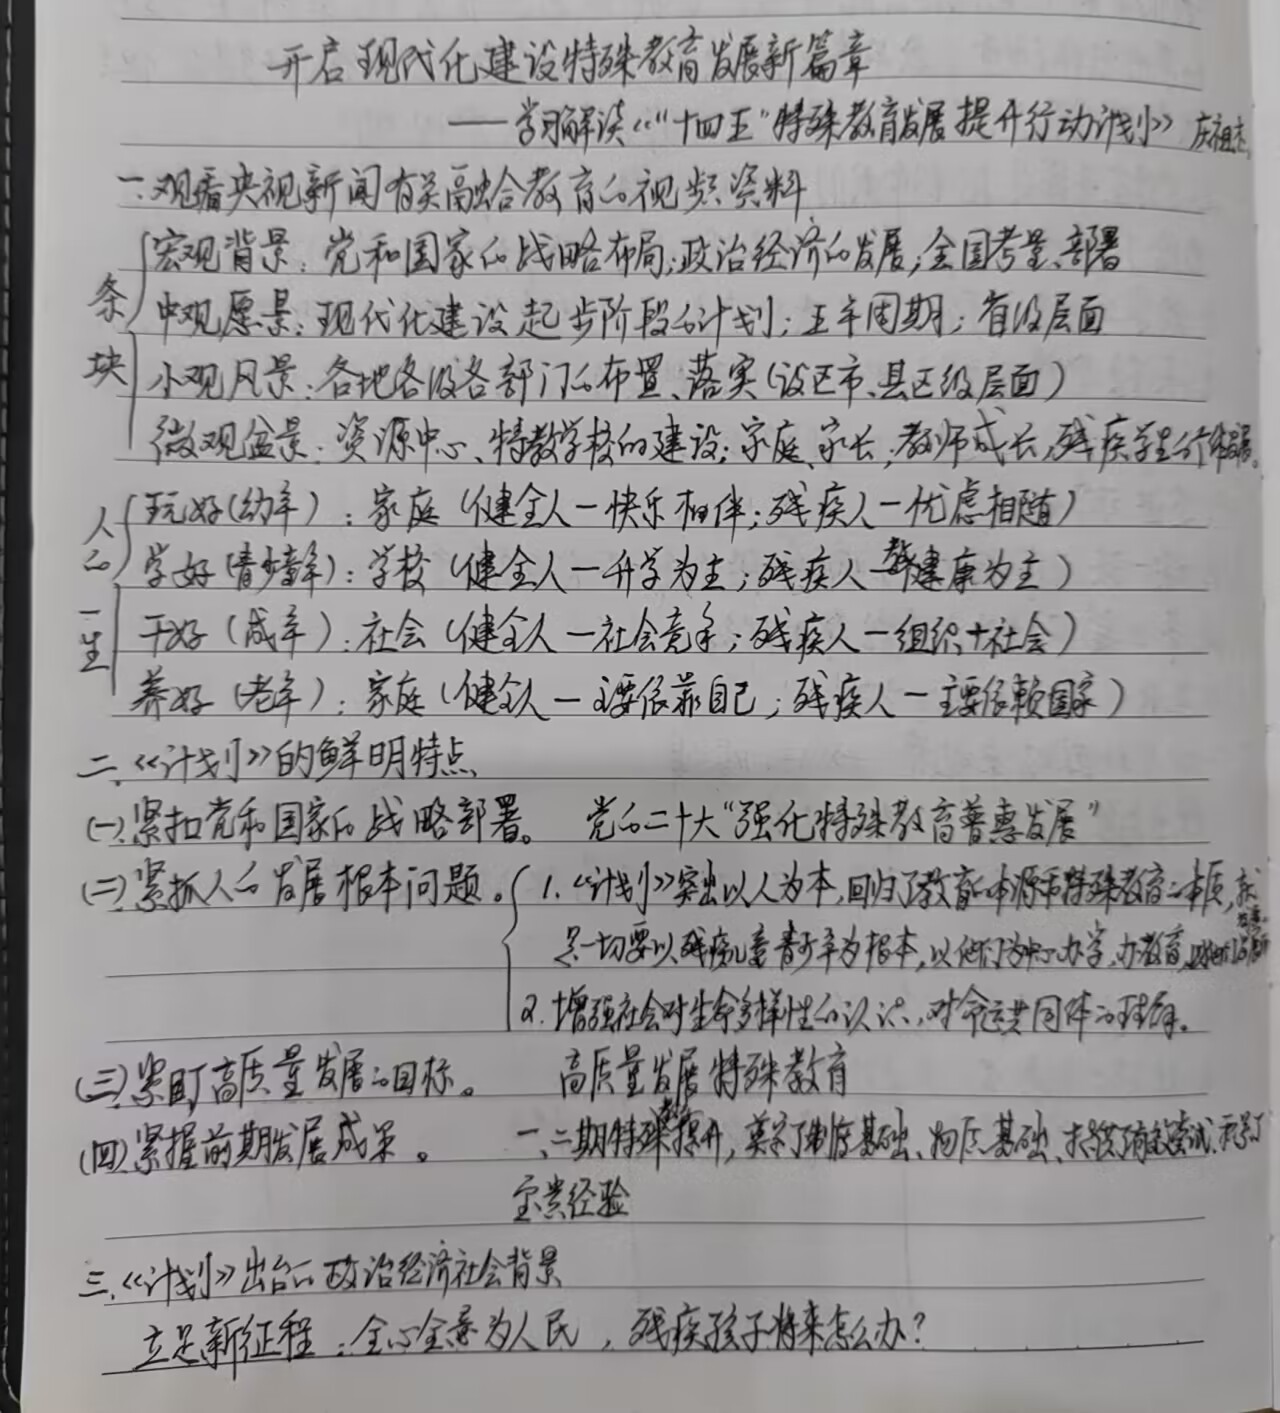 开启现代化建设特殊教育发展新篇章
——学习解读《“十四五”特殊教育发展提升行动计划》
一.观看央视新闻有关融合教育的视频资料
条块
宏观背景：党和国家的战略布局；政治经济的发展；全国考量、部署
中观愿景：现代化建设起步阶段的计划；五年周期；省级层面
小观风景：各地各级各部门的布置、落实（设区市、县区级层面）
微观盆景：资源中心、特教学校的建设；家庭、家长，教师成长，残疾学生个体发展。
人的一生
玩好（幼年）：家庭（健全人—快乐相伴；残疾人—忧虑相随）
学好（青少年）：学校（健全人—升学为主；残疾人—健康为主）
干好（成年）：社会（健全人—社会竞争；残疾人—组织+社会）
养好（老年）：家庭（健全人—主要依靠自己；残疾人—主要依赖国家）
二.《计划》的鲜明特点
(一).紧扣党和国家的战略部署。 党的二十大“强化特殊教育普惠发展”
(二).紧抓人的发展根本问题。 1.《计划》突出以人为本，回归了教育的本源和特殊教育的本质，就
是一切要以残疾儿童青少年为根本，以他们为中心办学，办教育，
2.增强社会对生命多样性的认识，对命运共同体的理解。
(三).紧盯高质量发展的目标。 高质量发展特殊教育
(四).紧握前期发展成果。 一、二期特殊教育提升，奠定了制度基础、物质基础、提供了有效尝试、积累了
宝贵经验
三.《计划》出台的政治经济社会背景
立足新征程：全心全意为人民，残疾孩子将来怎么办？